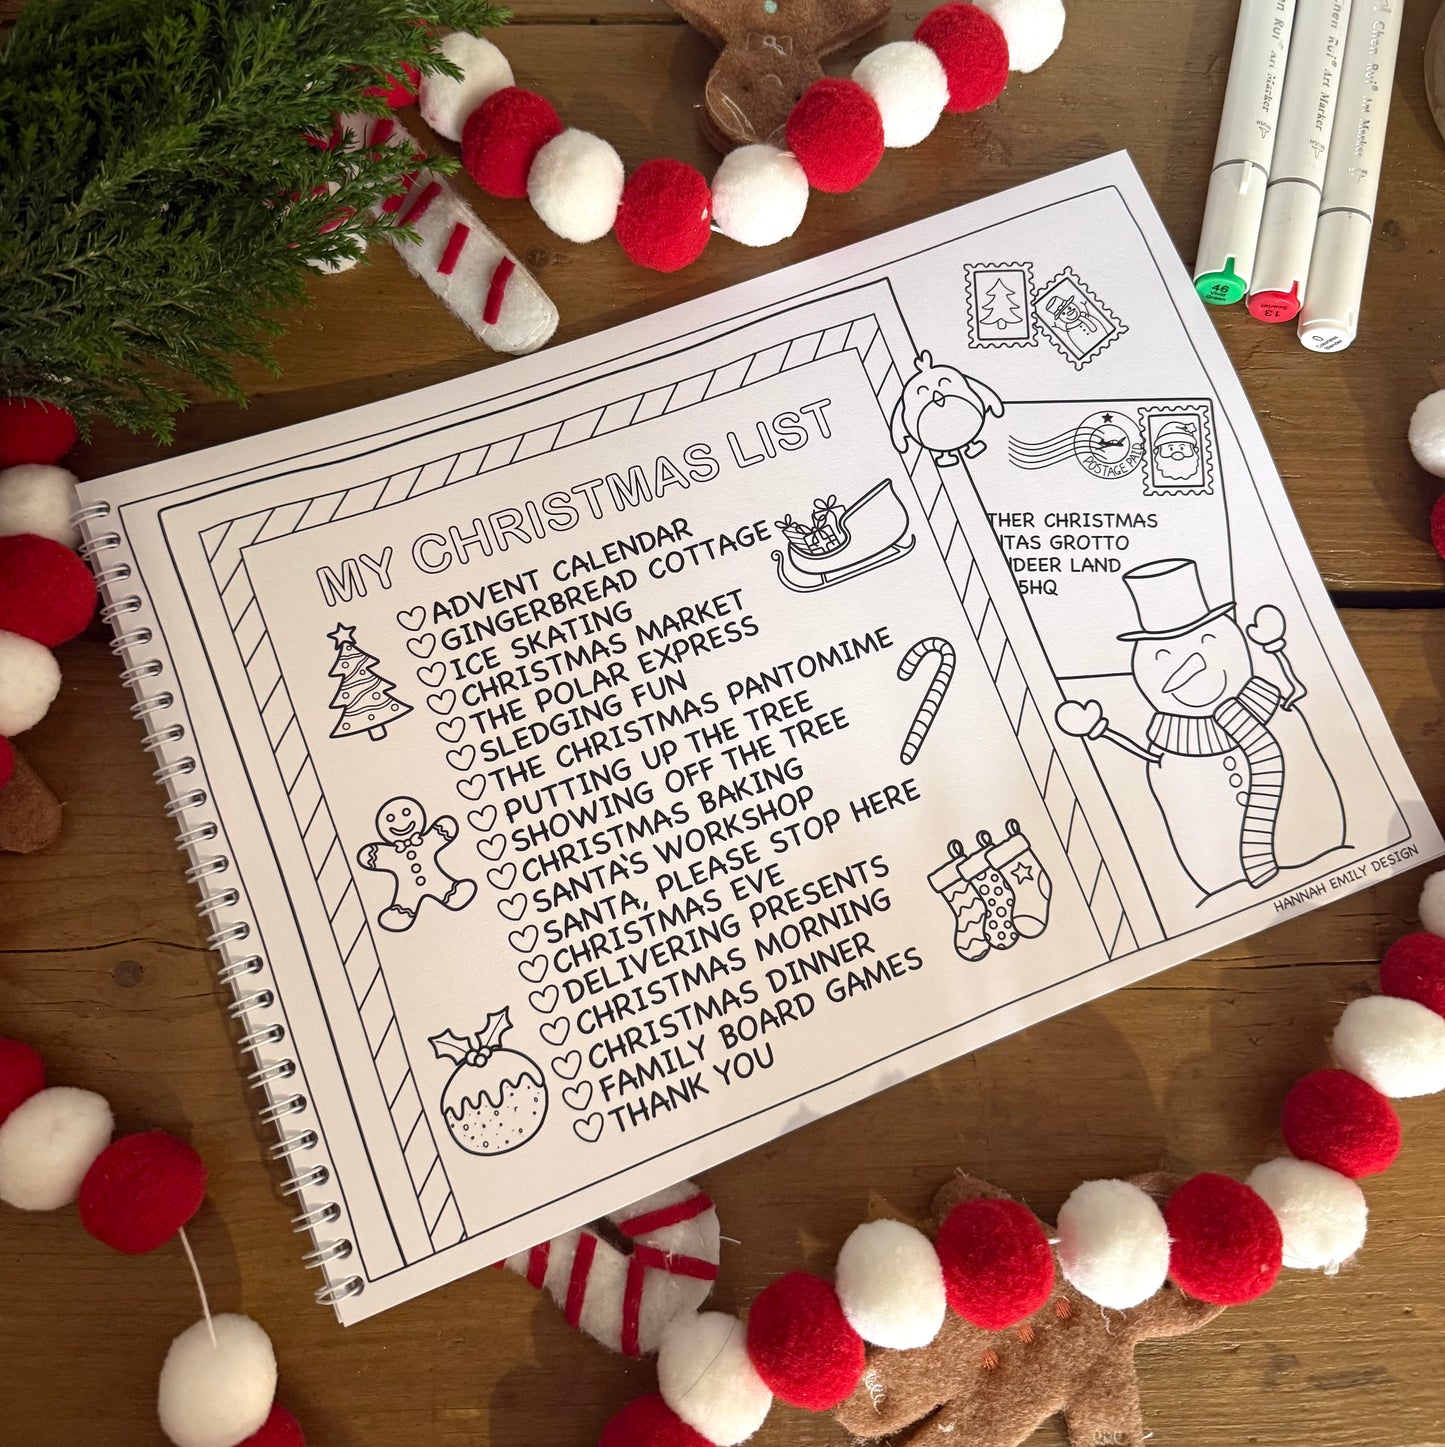 MY CHRISTMAS LIST
ADVENT CALENDAR
GINGERBREAD COTTAGE
ICE SKATING
CHRISTMAS MARKET
THE POLAR EXPRESS
SLEDGING FUN
THE CHRISTMAS PANTOMIME
PUTTING UP THE TREE
SHOWING OFF THE TREE
CHRISTMAS BAKING
SANTA'S WORKSHOP
SANTA, PLEASE STOP HERE
CHRISTMAS EVE
DELIVERING PRESENTS
CHRISTMAS MORNING
CHRISTMAS DINNER
FAMILY BOARD GAMES
THANK YOU
POSTAGE PAID
THER CHRISTMAS
TAS GROTTO
DEER LAND
5HQ
HANNAH EMILY DESIGN
Chen Rui® Art Marker
BRUSH
46
Vivid
Green
13
Scarlet
0
Colorless
Blender